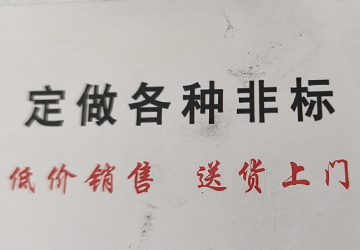 定做各种非标
低价销售 送货上门